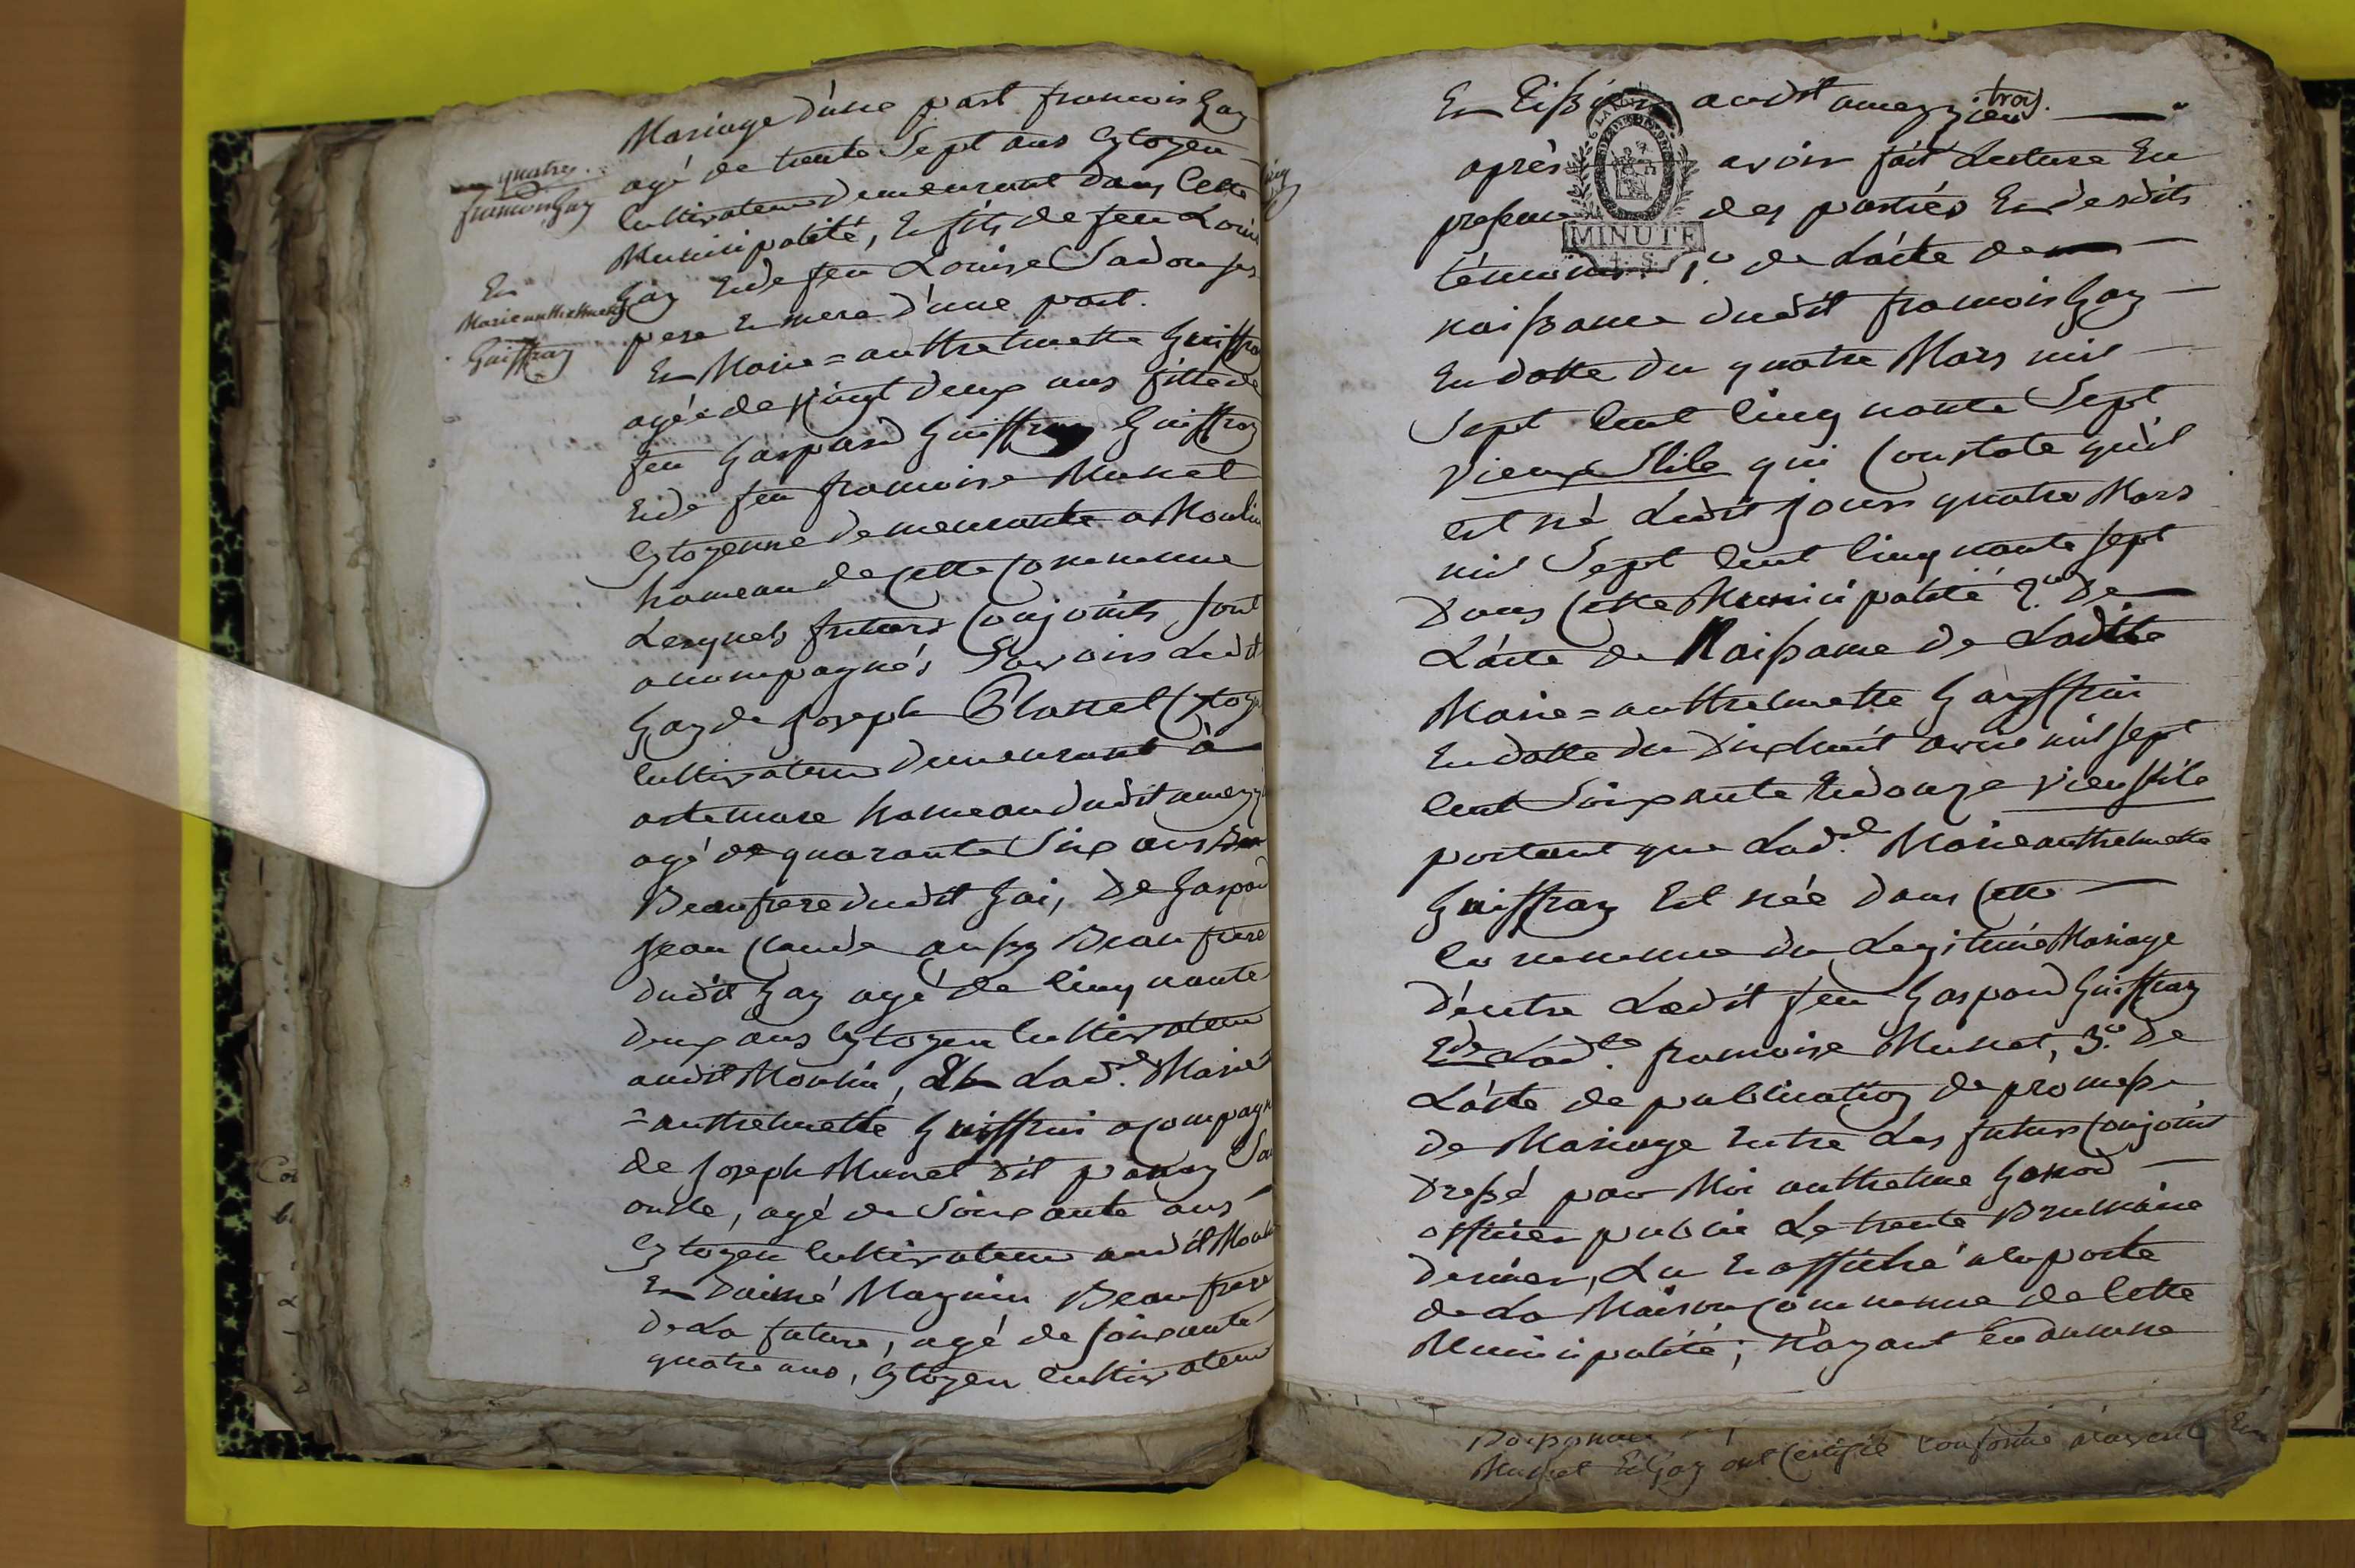 quatre.
francois Gay
Et
Marie anthelmette
Guiffray
Mariage d'une part francois Gay
agé de trente Sept ans Cytoyen
Cultivateur demeurant dans Cette
Municipalité, & fils de feu Louis
Gay Et de feu Louise
pere & mere d'une part.
Et Marie = anthelmette Guiffra
agée de vingt deux ans fille de
feu Gaspard Guiffray
Et de feu francoise Munet
Cytoyenne demeurante a Moulin
hameau de Cette Commune
Lesquels futurs Conjoints sont
acompagnés Savoir Ledit
Gay de Joseph Cytoy
Cultivateur demeurant à
artemare hameau dudit amezy
agé de quarante Six ans
Beaufrere dudit Gai, de Gaspar
Jean Claude aussy Beau frere
dudit Gay agé de Cinq nante
deux ans Cytoyen Cultivateur
audit Moulin, Et Lad.e Marie
= anthelmette Guiffrai acompagn
de Joseph Munet dit Son
oncle, agé de Soixante ans
Cytoyen Cultivateur audit Moulin
Et Daimé Magnin Beau frere
de La future, agé de soixante
quatre ans, Cytoyen Cultivateur
trois.
En audit amezyieu
après avoir fait Lecture En
presence des parties Et desdits
témoins 1.o de L'acte de
naissance dudit francois Gay
En datte du quatre Mars mil
Sept Cent Cinq nante Sept
vieux Stile qui Constate qu'il
est né Ledit jour quatre Mars
mil Sept Cent Cinq nante sept
Dans Cette Municipalité 2.o De
L'acte de Naissance de Laditte
Marie = anthelmette Gayffrai
En datte du Dixhuit avril mil sept
Cent Soixante Et douze vieu stile
portant que Lad.e Marie anthelmette
Guiffray Est née Dans Cette
Commune du Legitime Mariage
d'entre Ledit feu Gaspard Guiffray
Et de Lad.te francoise Munet, 3.o De
L'acte de publication de promesse
de Mariage Entre Les futurs Conjoint
Dressé par Moi anthelme Gonod
officier public Le trente Brumaire
dernier, Lu & affiché a la porte
de La Maison Commune de Cette
Municipalité; N'ayant Eu aucune
Munet Et Gay ont Certifié Conforme